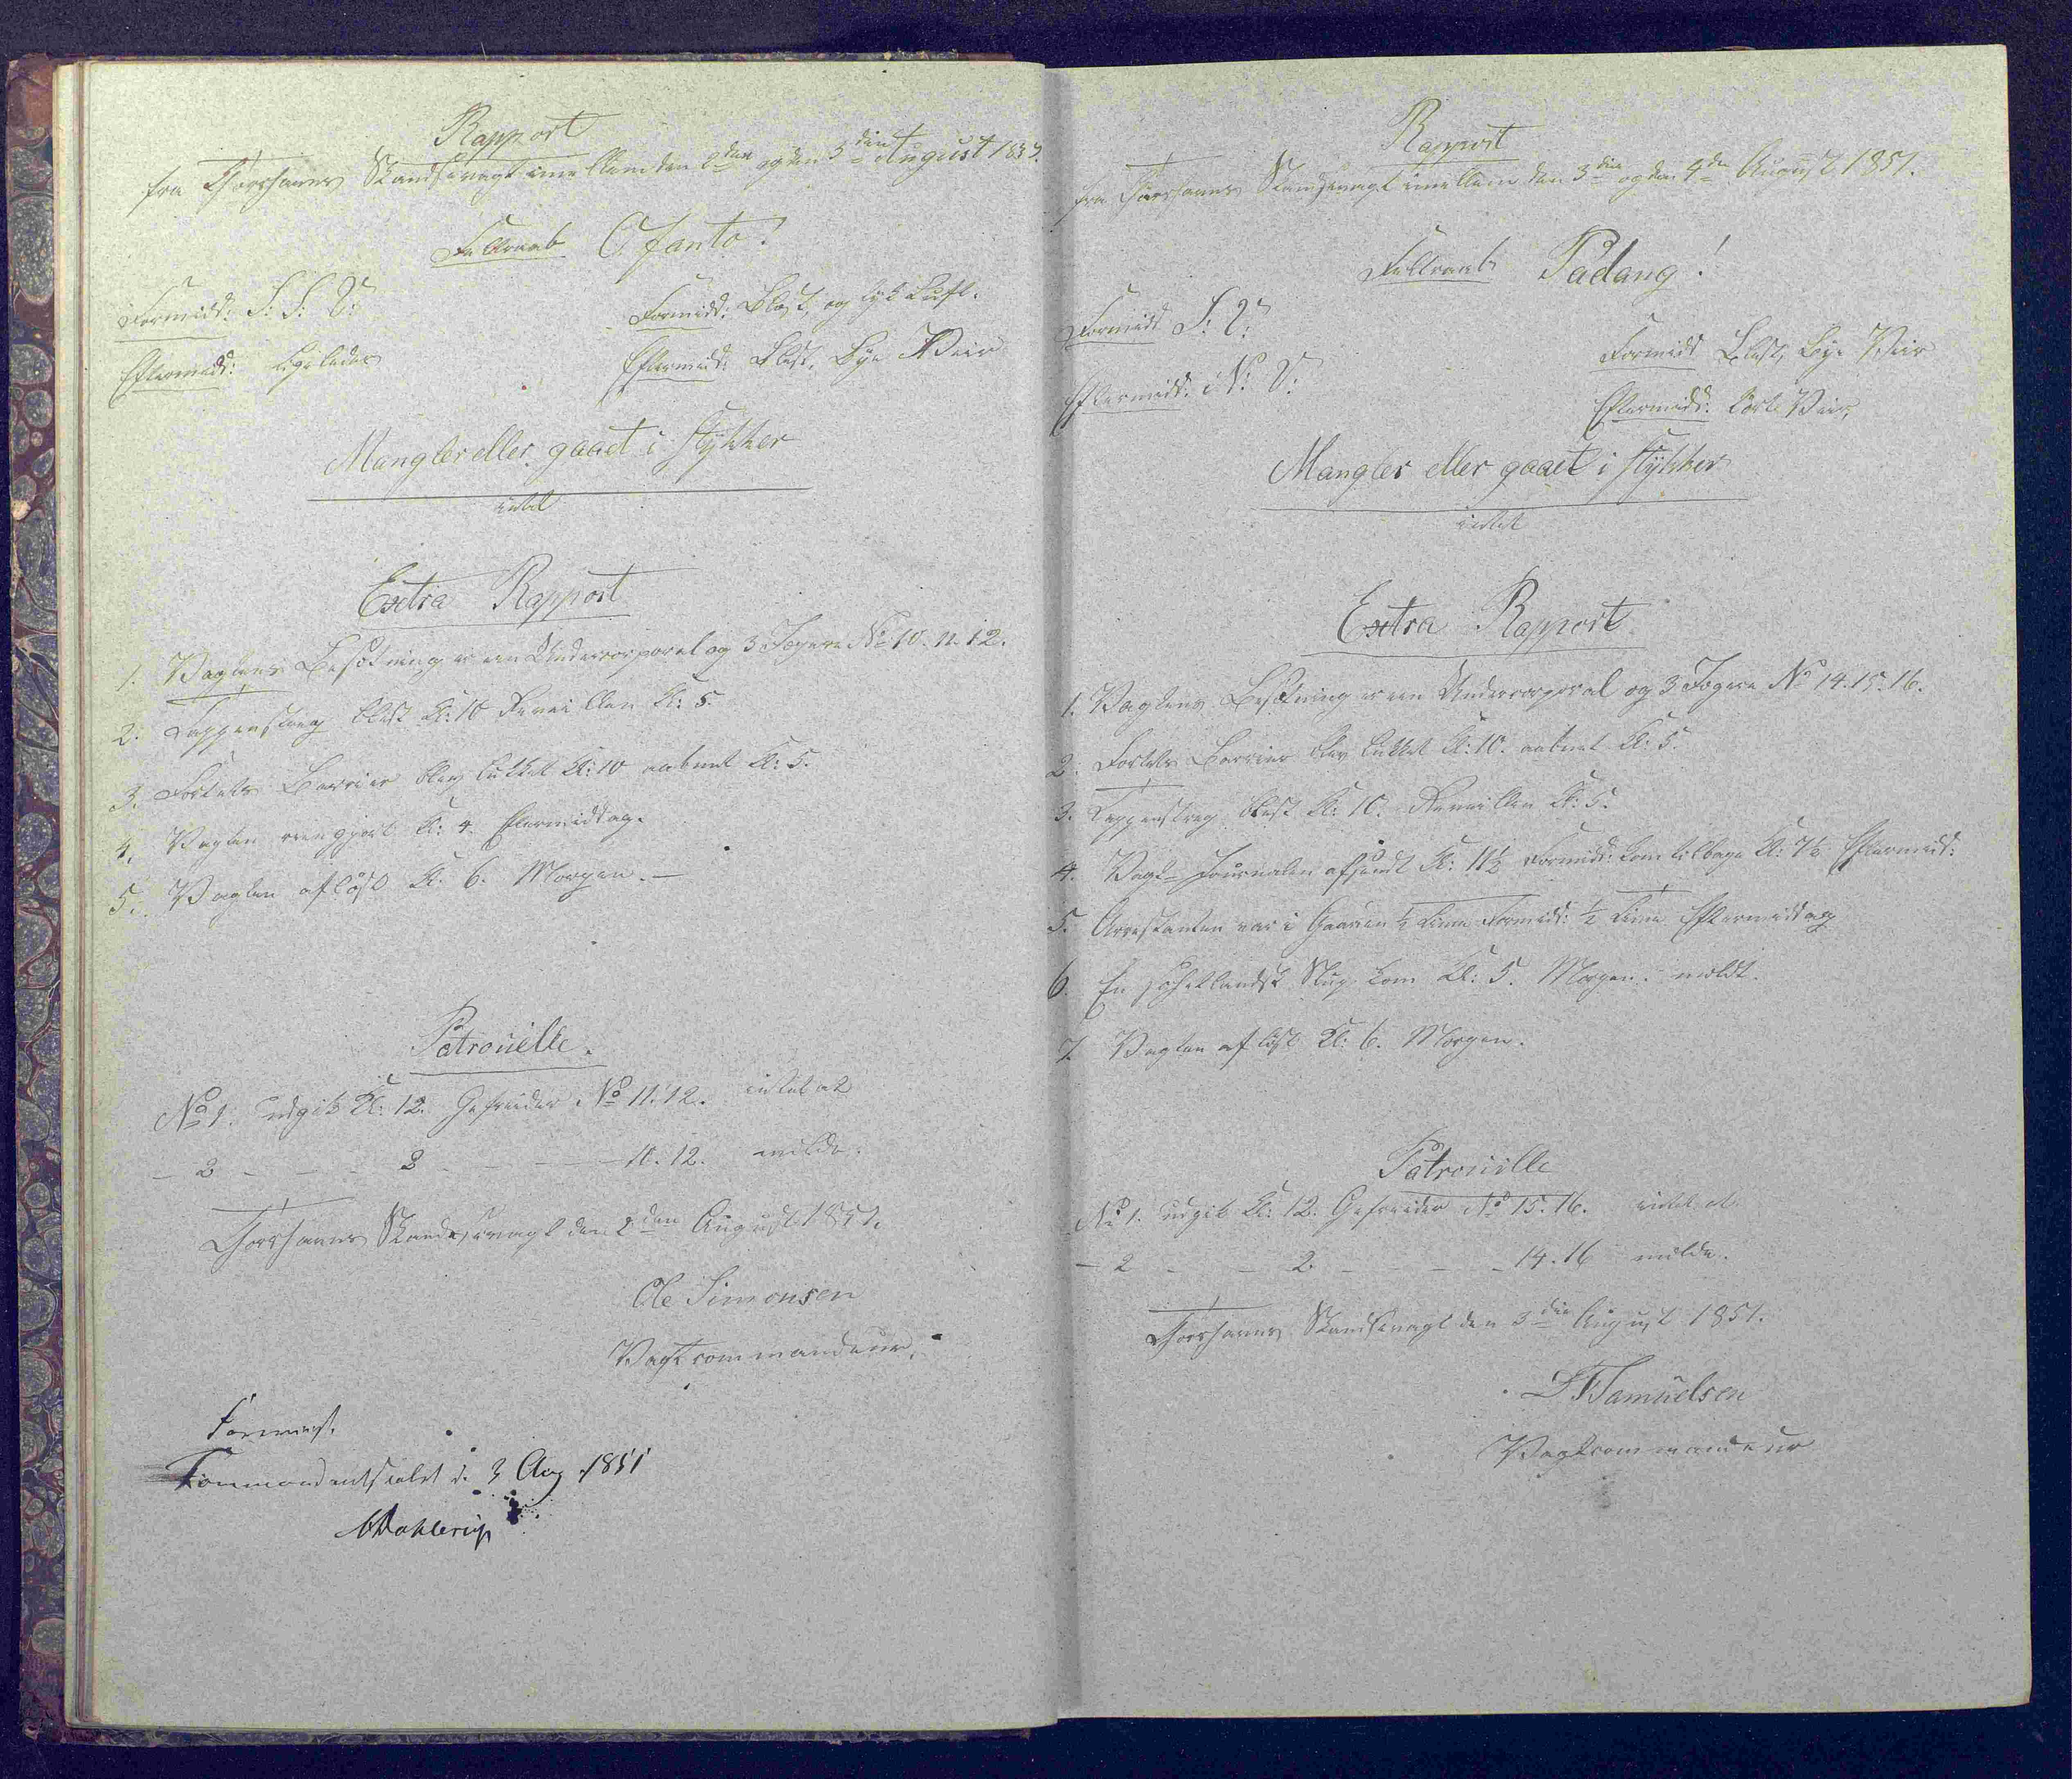 Rapport
fra Thorshavns Skandsevagt imellem den 2den og den 3die August 1851.
Feltraab Ofanto!
Formidd: S: S: V:
Formidd: Blæst, og tyk Luft.
Eftermidd: ligeledes
Eftermidd: Blæst, Bye Veir
Mangler eller gaaet i Stykker
intet
Extra Rapport
1. Vagtens Besætning er een Undercorporal og 3 Jægere No 10. 11. 12.
2. Tappenstreg blæst Kl: 10 Reveillen Kl: 5.
3. Fortets Barrier blev lukket Kl: 10 aabnet Kl: 5.
4. Vagten reengjort Kl: 4. Eftermiddag.
5. Vagten afløst Kl. 6. Morgen. —
Patrouille.
No 1. udgik Kl: 12. Gefreider No 11. 12. intet at
- 2 - - - 2 - - - 10. 12. melde.
Thorshavns Skandsevagt den 2den August 1851.
Ole Simonsen
Vagtcommandeur.
Foreviist.
Commandantskabet d. 3 Aug 1851
Dahlerup
Rapport
fra Thorshavns Skandsevagt imellem den 3die og den 4de August 1851.
Feltraab Padang!
Formidd S: V:
Formidd Blæst, Bye Veir
Eftermidd: N: V:
Eftermidd: Tørt Veir,
Mangler eller gaaet i Stykker
intet
Extra Rapport
1. Vagtens Besætning er een Undercorporal og 3 Jægere No 14. 15. 16.
2. Fortets Barrier blev lukket Kl: 10. aabnet Kl: 5.
3. Tappenstreg blæst Kl: 10. Reveillen Kl: 5.
4. Vagt-Journalen afsendt Kl: 11½ Formidd: kom tilbage Kl: 7½ Eftermidd:
5. Arrestanten var i Gaarden ½ Time Formidd: ½ Time Eftermiddag
6. En schetlandsk Slup kom Kl: 5. Morgen. meldt.
7. Vagten afløst Kl: 6. Morgen.
Patrouille
No 1. udgik Kl: 12. Gefreider No 15. 16. intet at
- 2 - - 2. - - - 14. 16 melde.
Thorshavns Skandsevagt den 3die August 1851.
Samuelsen
Vagtcommandeur